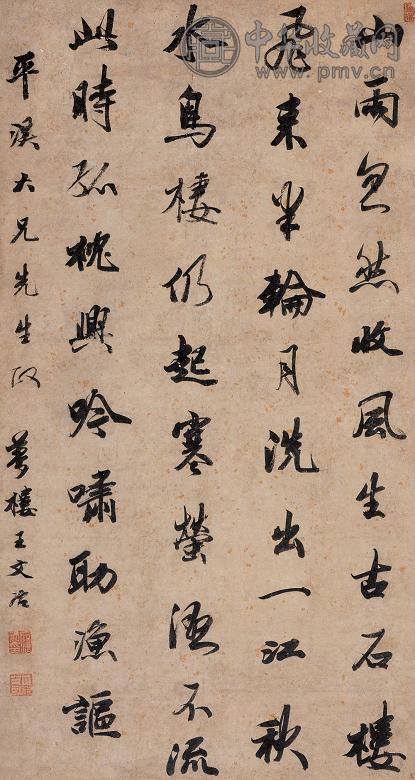 山雨忽然收風生古石樓
飛來半輪月洗出一江秋
水鳥棲仍起寒螢溼不流
此時孤枕興吟嘯助漁謳
平溪大兄先生政 夢樓王文治
中华收藏网
www.pmv.cn